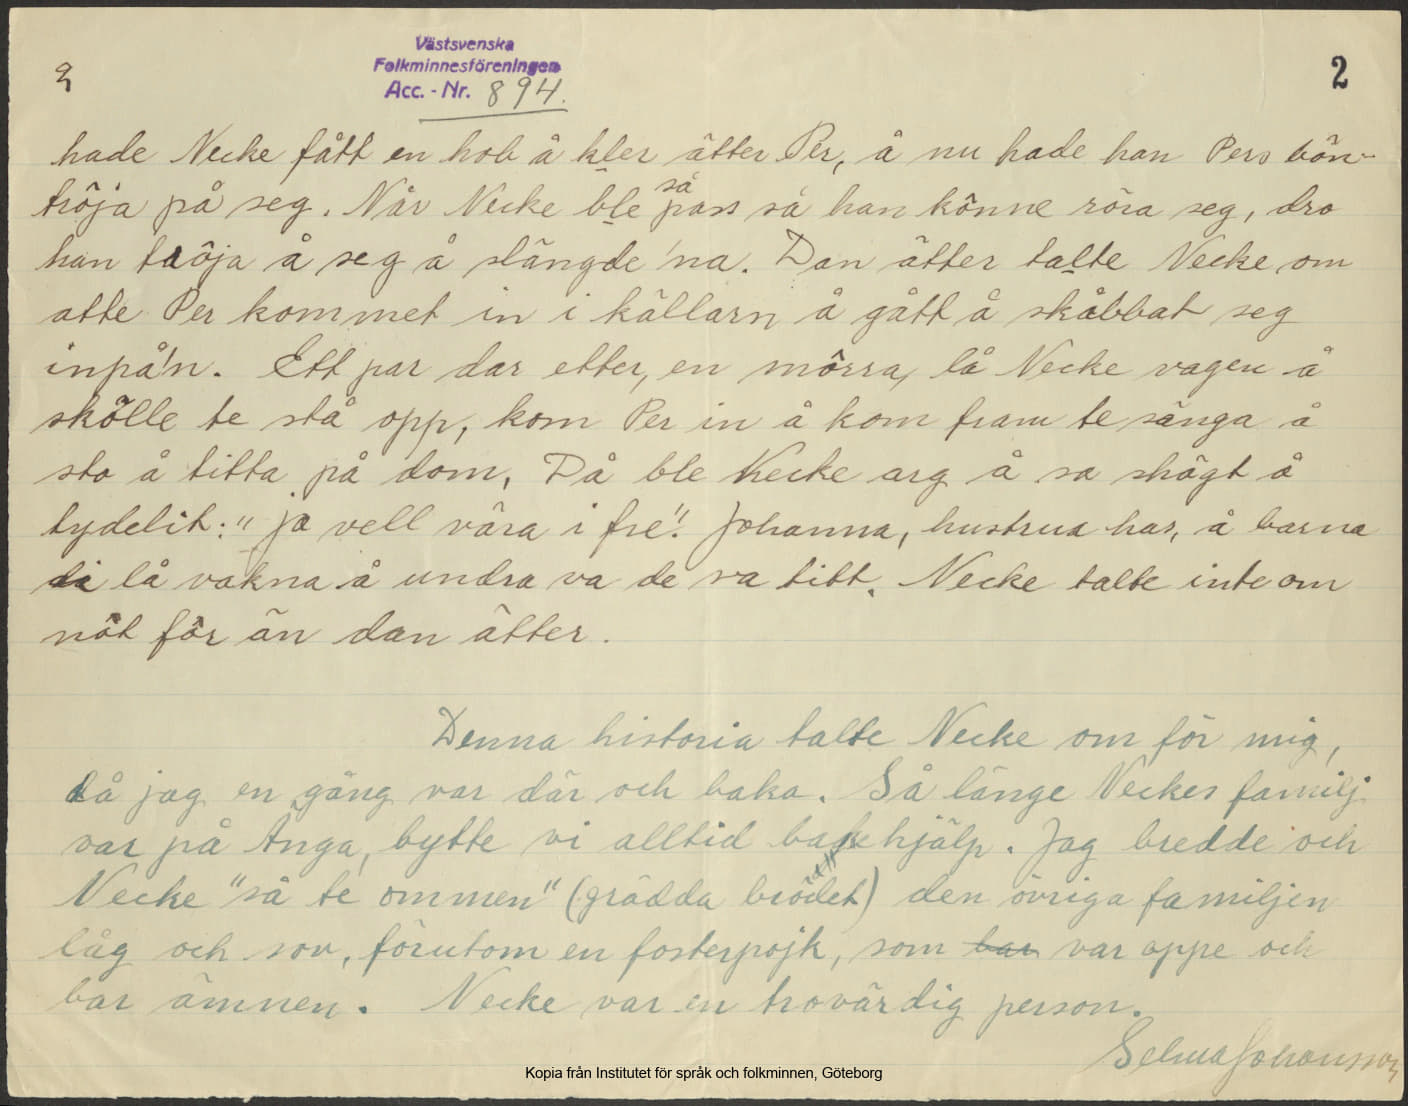 Västsvenska
Folkminnesföreningen
Acc. - Nr. 894.
2
hade Necke fått en hob å kler ätter Per, å nu hade han Pers bôn-
trôja på seg. Når Necke ble så pass så han kônne röra seg, dro
han trôja å seg å slängde 'na. Dan ätter talte Necke om
atte Per kommet in i källarn å gått å skåbbat seg
inpå'n. Ett par dar etter, en môrra, lå Necke vagen å
skôlle te stå opp, kom Per in å kom fram te sänga å
sto å titta på dom. Då ble Necke arg å sa skägt å
tydelit: "ja vell våra i fre". Johanna, hustrua has, å barna
di lå vakna å undra va de va titt. Necke talte inte om
nôt fôr än dan ätter.
Denna historia talte Necke om för mig,
då jag en gång var där och baka. Så länge Neckes familj
var på Änga, bytte vi alltid bakehjälp. Jag bredde och
Necke "så te ommen" (grädda brödet) den övriga familjen
låg och sov, förutom en fosterpojk, som bar var oppe och
bar ämnen. Necke var en trovärdig person.
Selma Johansson
Kopia från Institutet för språk och folkminnen, Göteborg